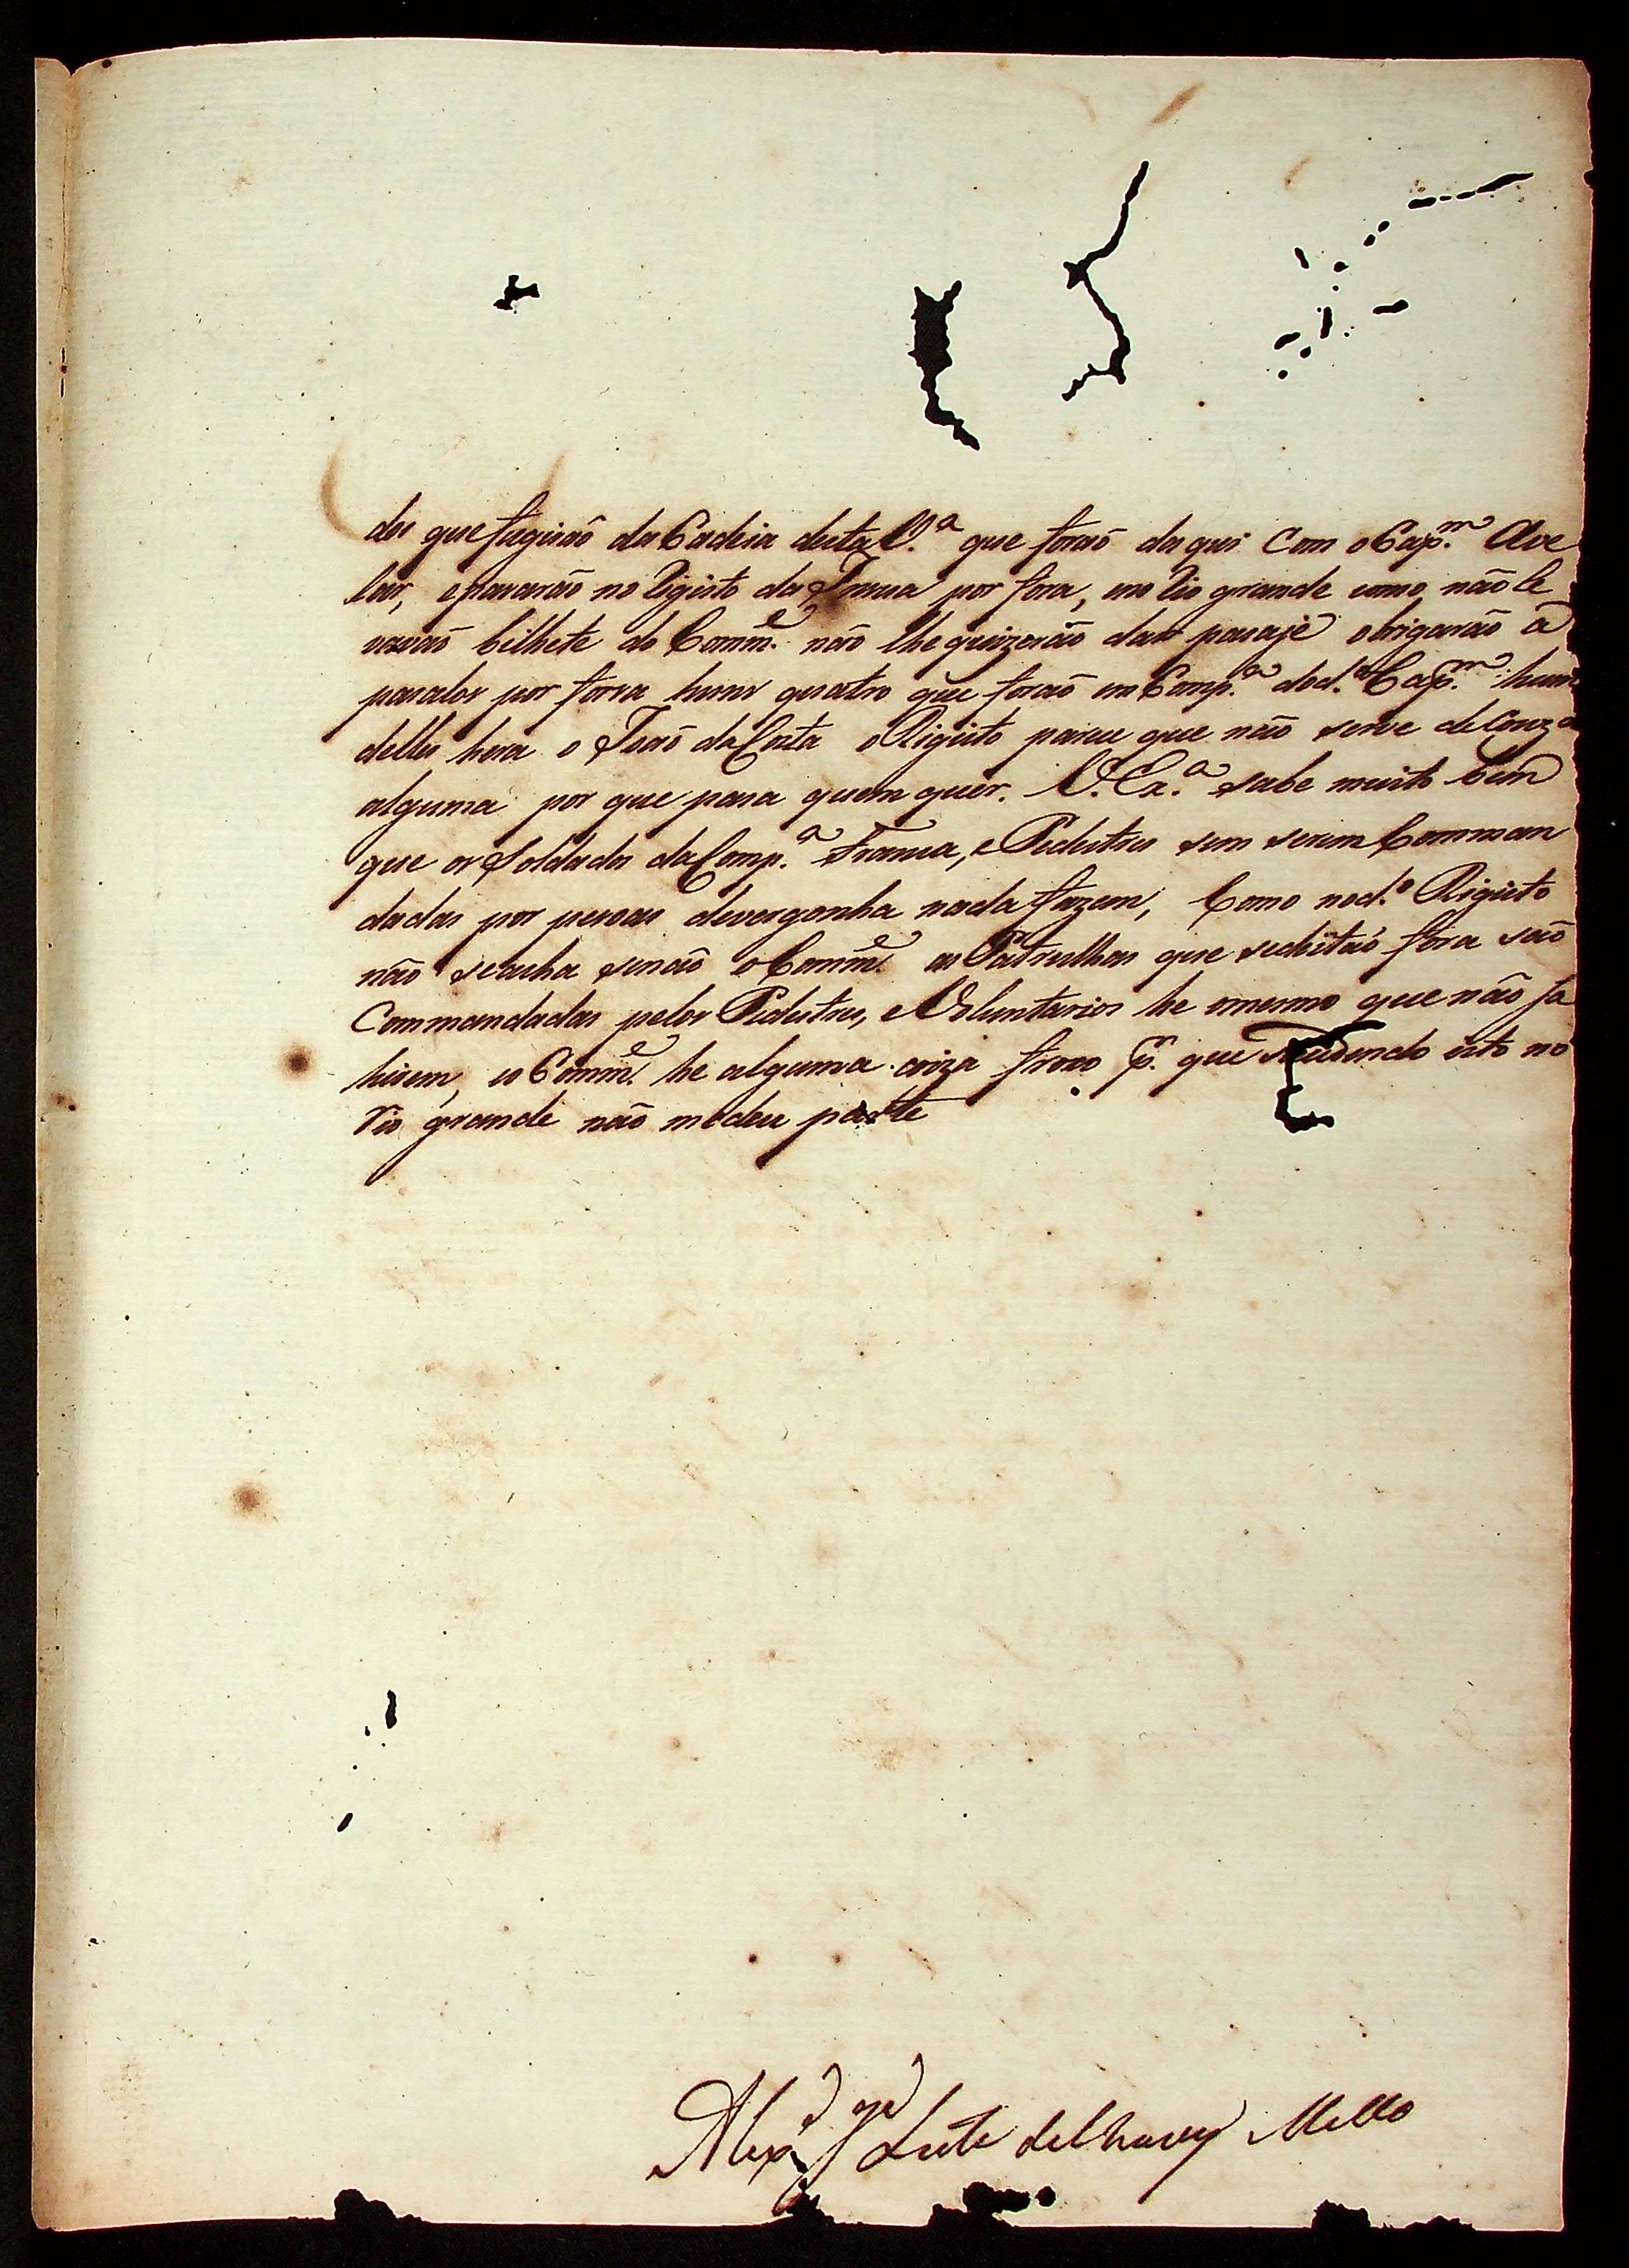 dos que fugiraõ da Cadeia desta V.ª que foraõ daqui Com o Cap.m Ave
lar, epasarão no Rigisto da Franca por fora, eno Rio grande como não le
vavaõ bilhete do Comm.e não lhe quizerão dar pasaje obrigarão á
pasalos por forsa huns quatro que foraõ em Comp.ª do d.º Cap.m hum
delles hera o Joaõ da Costa o Rigisto parece que não serve de Couza
alguma por que para quem quer. V. Ex.ª sabe muito bem
que os Soldados da Comp.ª Franca, e Pedestres sem serem Comman
dadas por pesoas devergonha nada fazem, Como no d.º Rigisto
não seacha senaõ o Comm.e as Patrulhas que sedeitaõ fóra saõ
Commandadas pelos Pedestres, e Voluntarios he omesmo que não sa
hirem, eo Comm.e he alguma coiza froxo p.r que sucedendo isto no
Rio grande não medeu parte
Alex.e Luis de Souza Mello